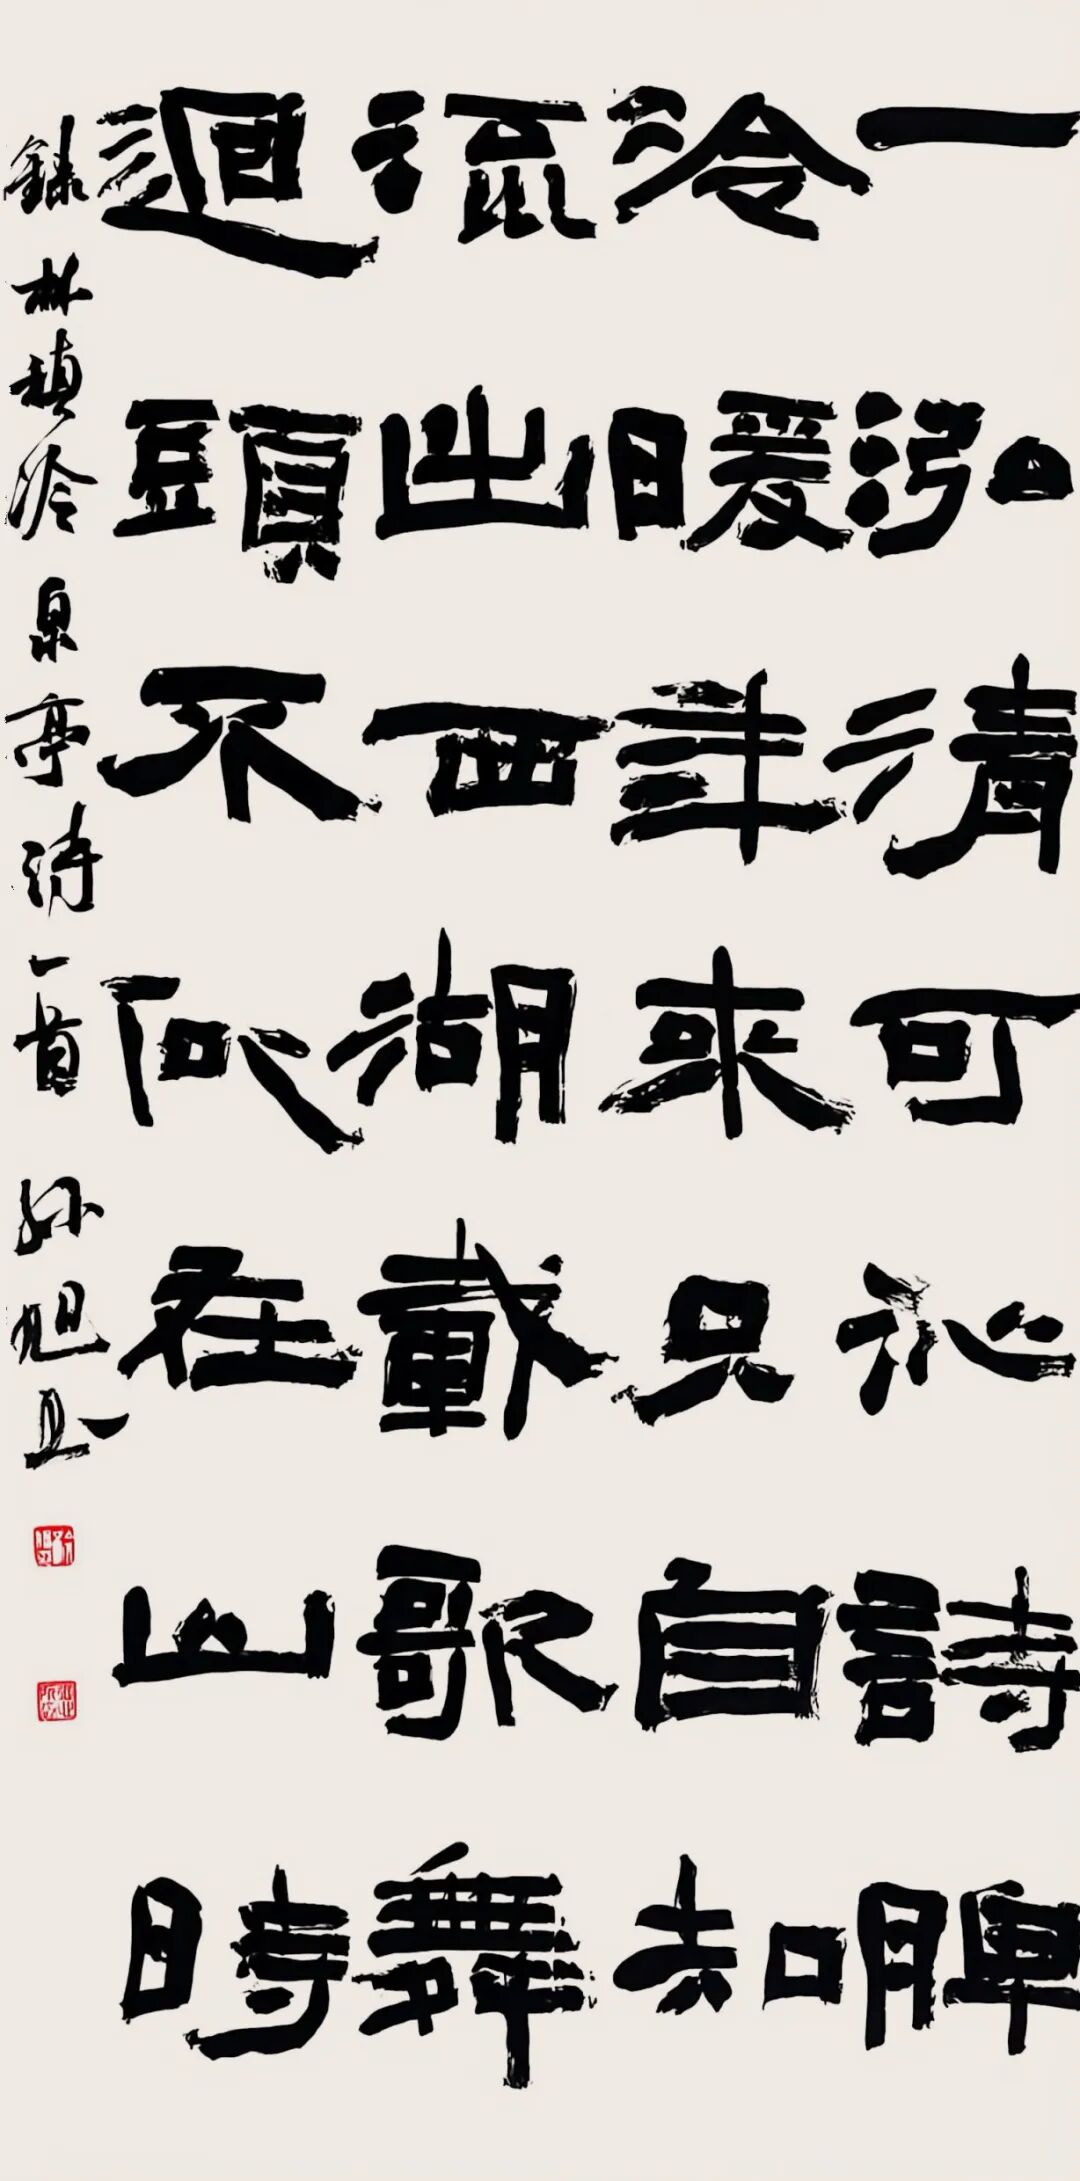 一泓清可沁詩脾
冷暖年来只自知
流出西湖載歌舞
迴頭不似在山時
録林稹冷泉亭诗一首 孙旭